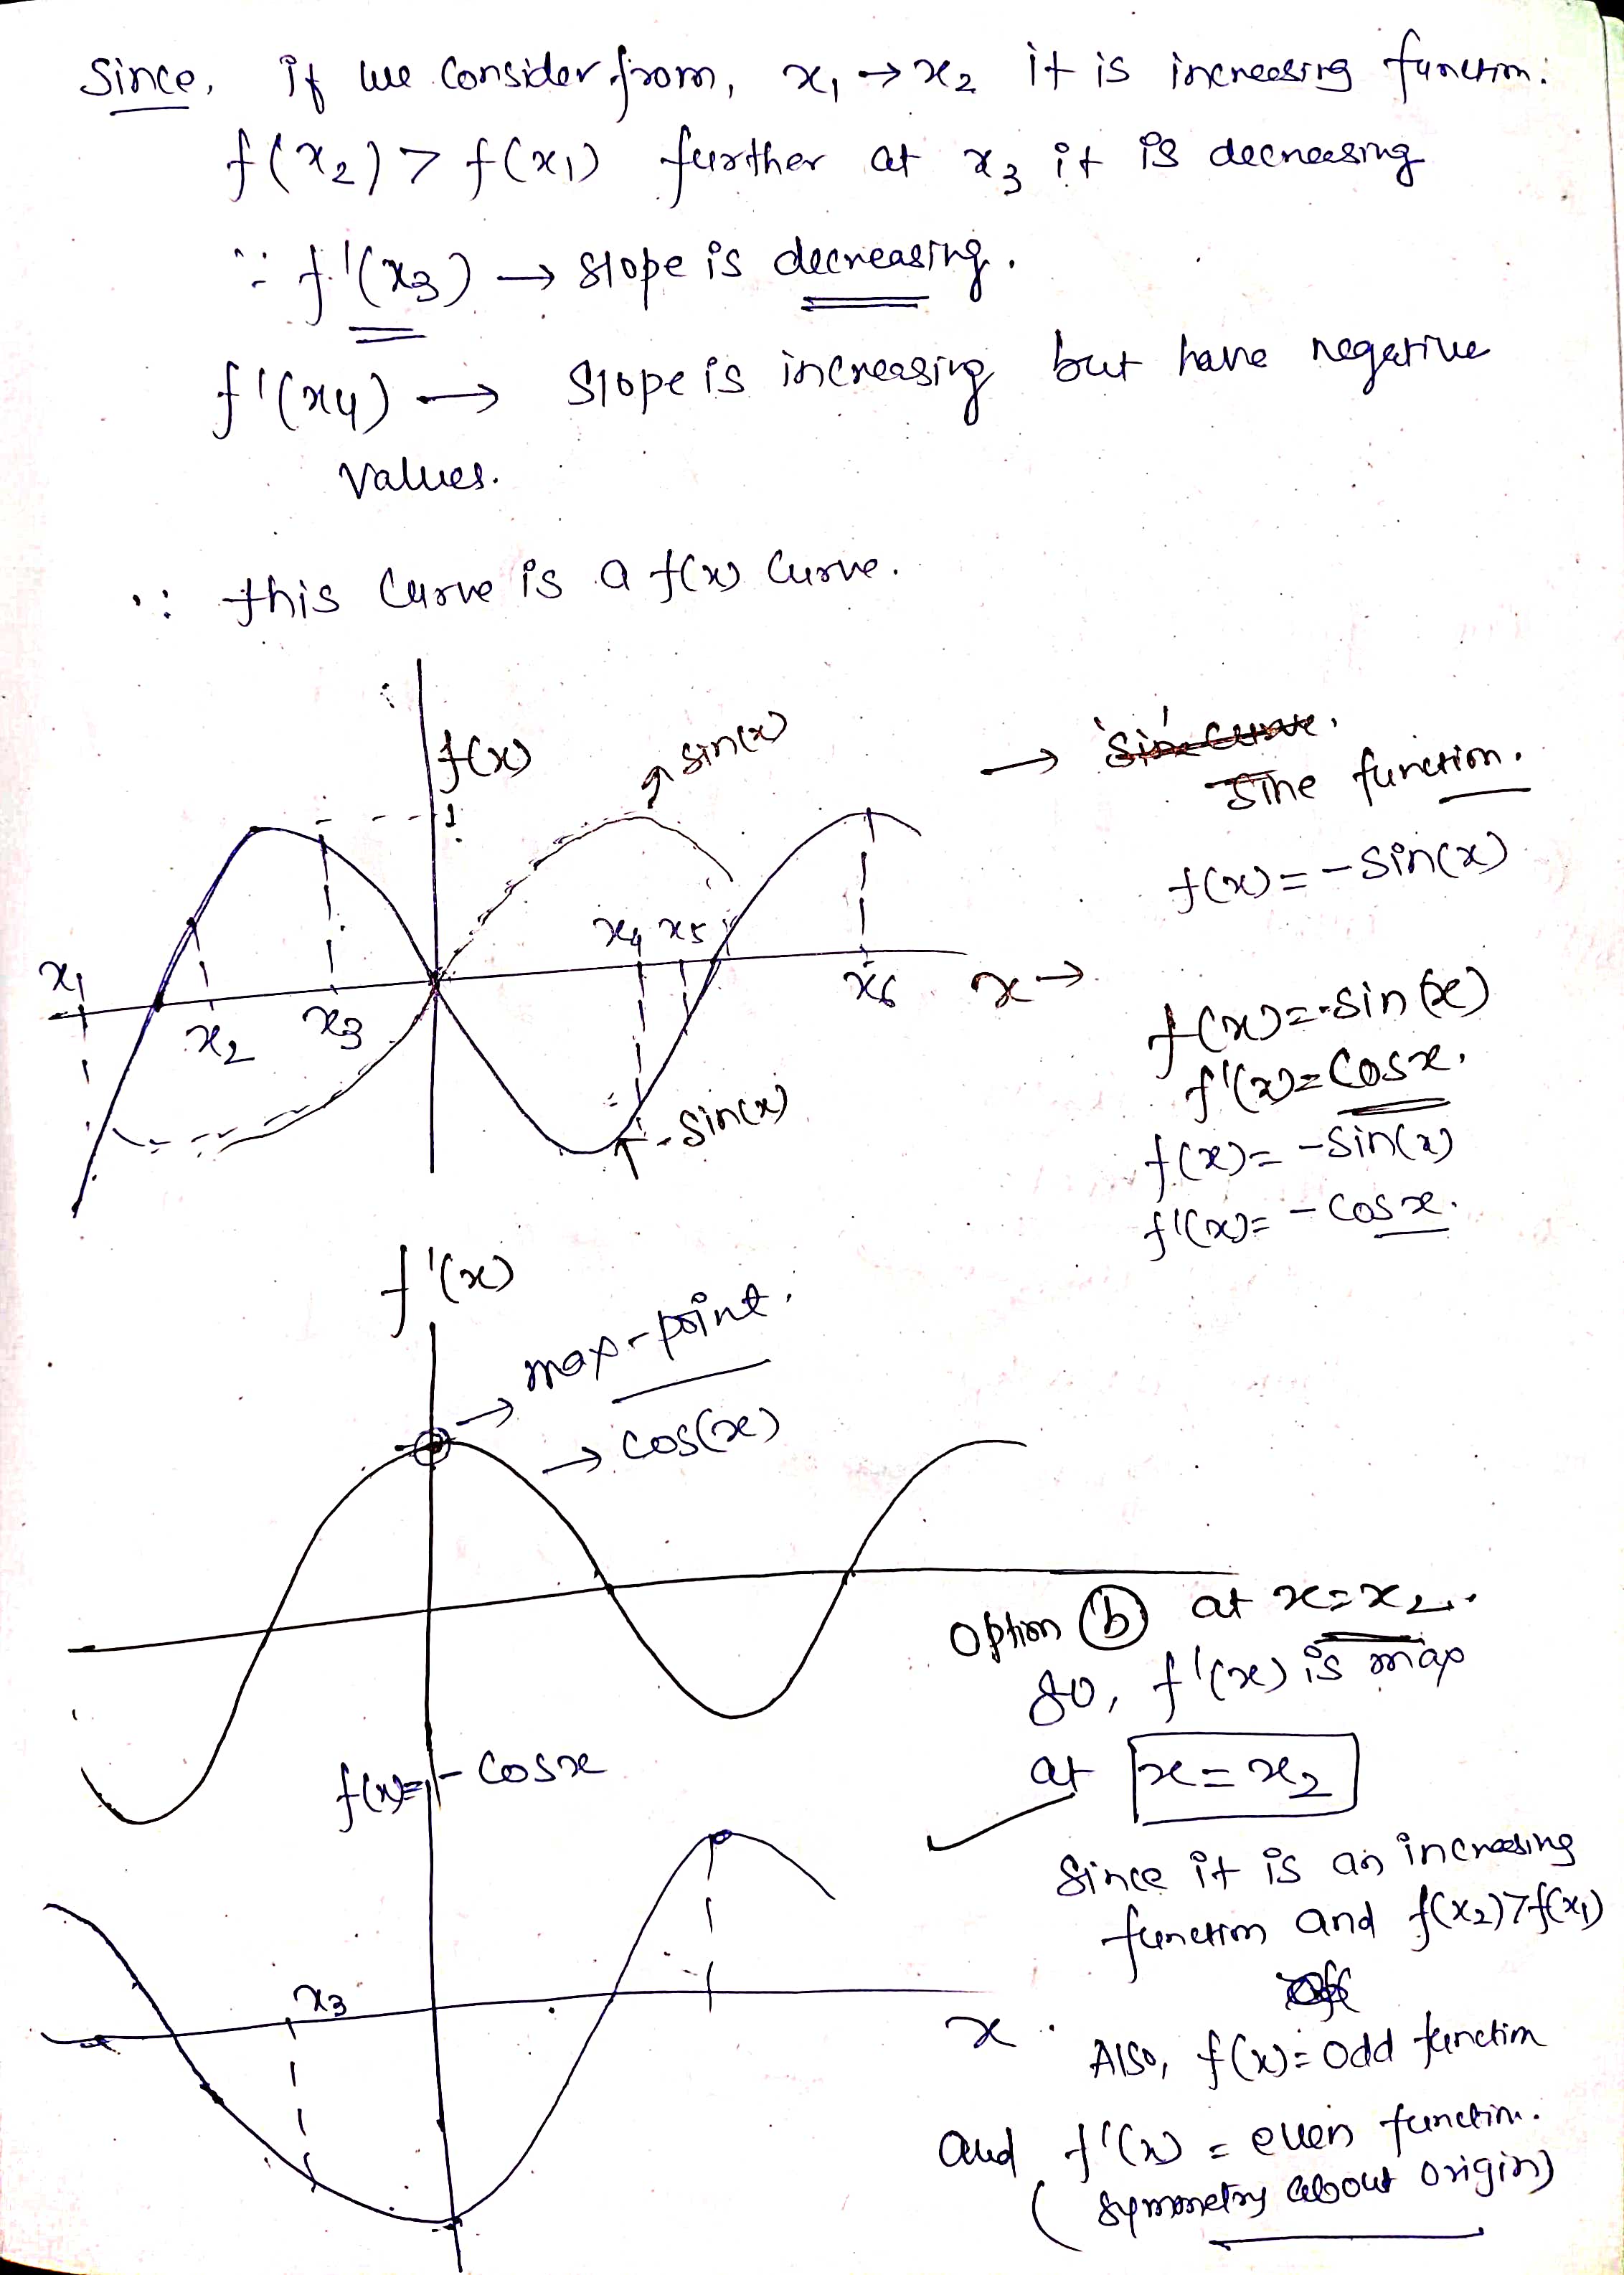 Since, if we Consider from, x₁ → x₂ it is increasing function.
f(x₂) > f(x₁) further at x₃ it is decreasing
∵ f'(x₃) → slope is decreasing.
f'(x4) → Slope is increasing but have negative
values.
∴ this Curve is a f(x) Curve.
f(x)
sin(x)
1
→ Sine Curve.
Sine function.
f(x) = - Sin(x)
x₁
x₂
x₃
x₄ x₅
x₆
x →
- Sin(x)
f(x) = -sin(x)
f'(x) = Cosx.
f(x) = - Sin(x)
f'(x) = - Cosx.
f'(x)
→ max-point.
→ Cos(x)
Option (b) at x = x₂.
so, f'(x) is max
at x = x₂
f(x) = - Cosx
Since it is an increasing
function and f(x₂) > f(x₁)
x₃
x
Also, f(x) = odd function
and f'(x) = even function.
(Symmetry about origin)